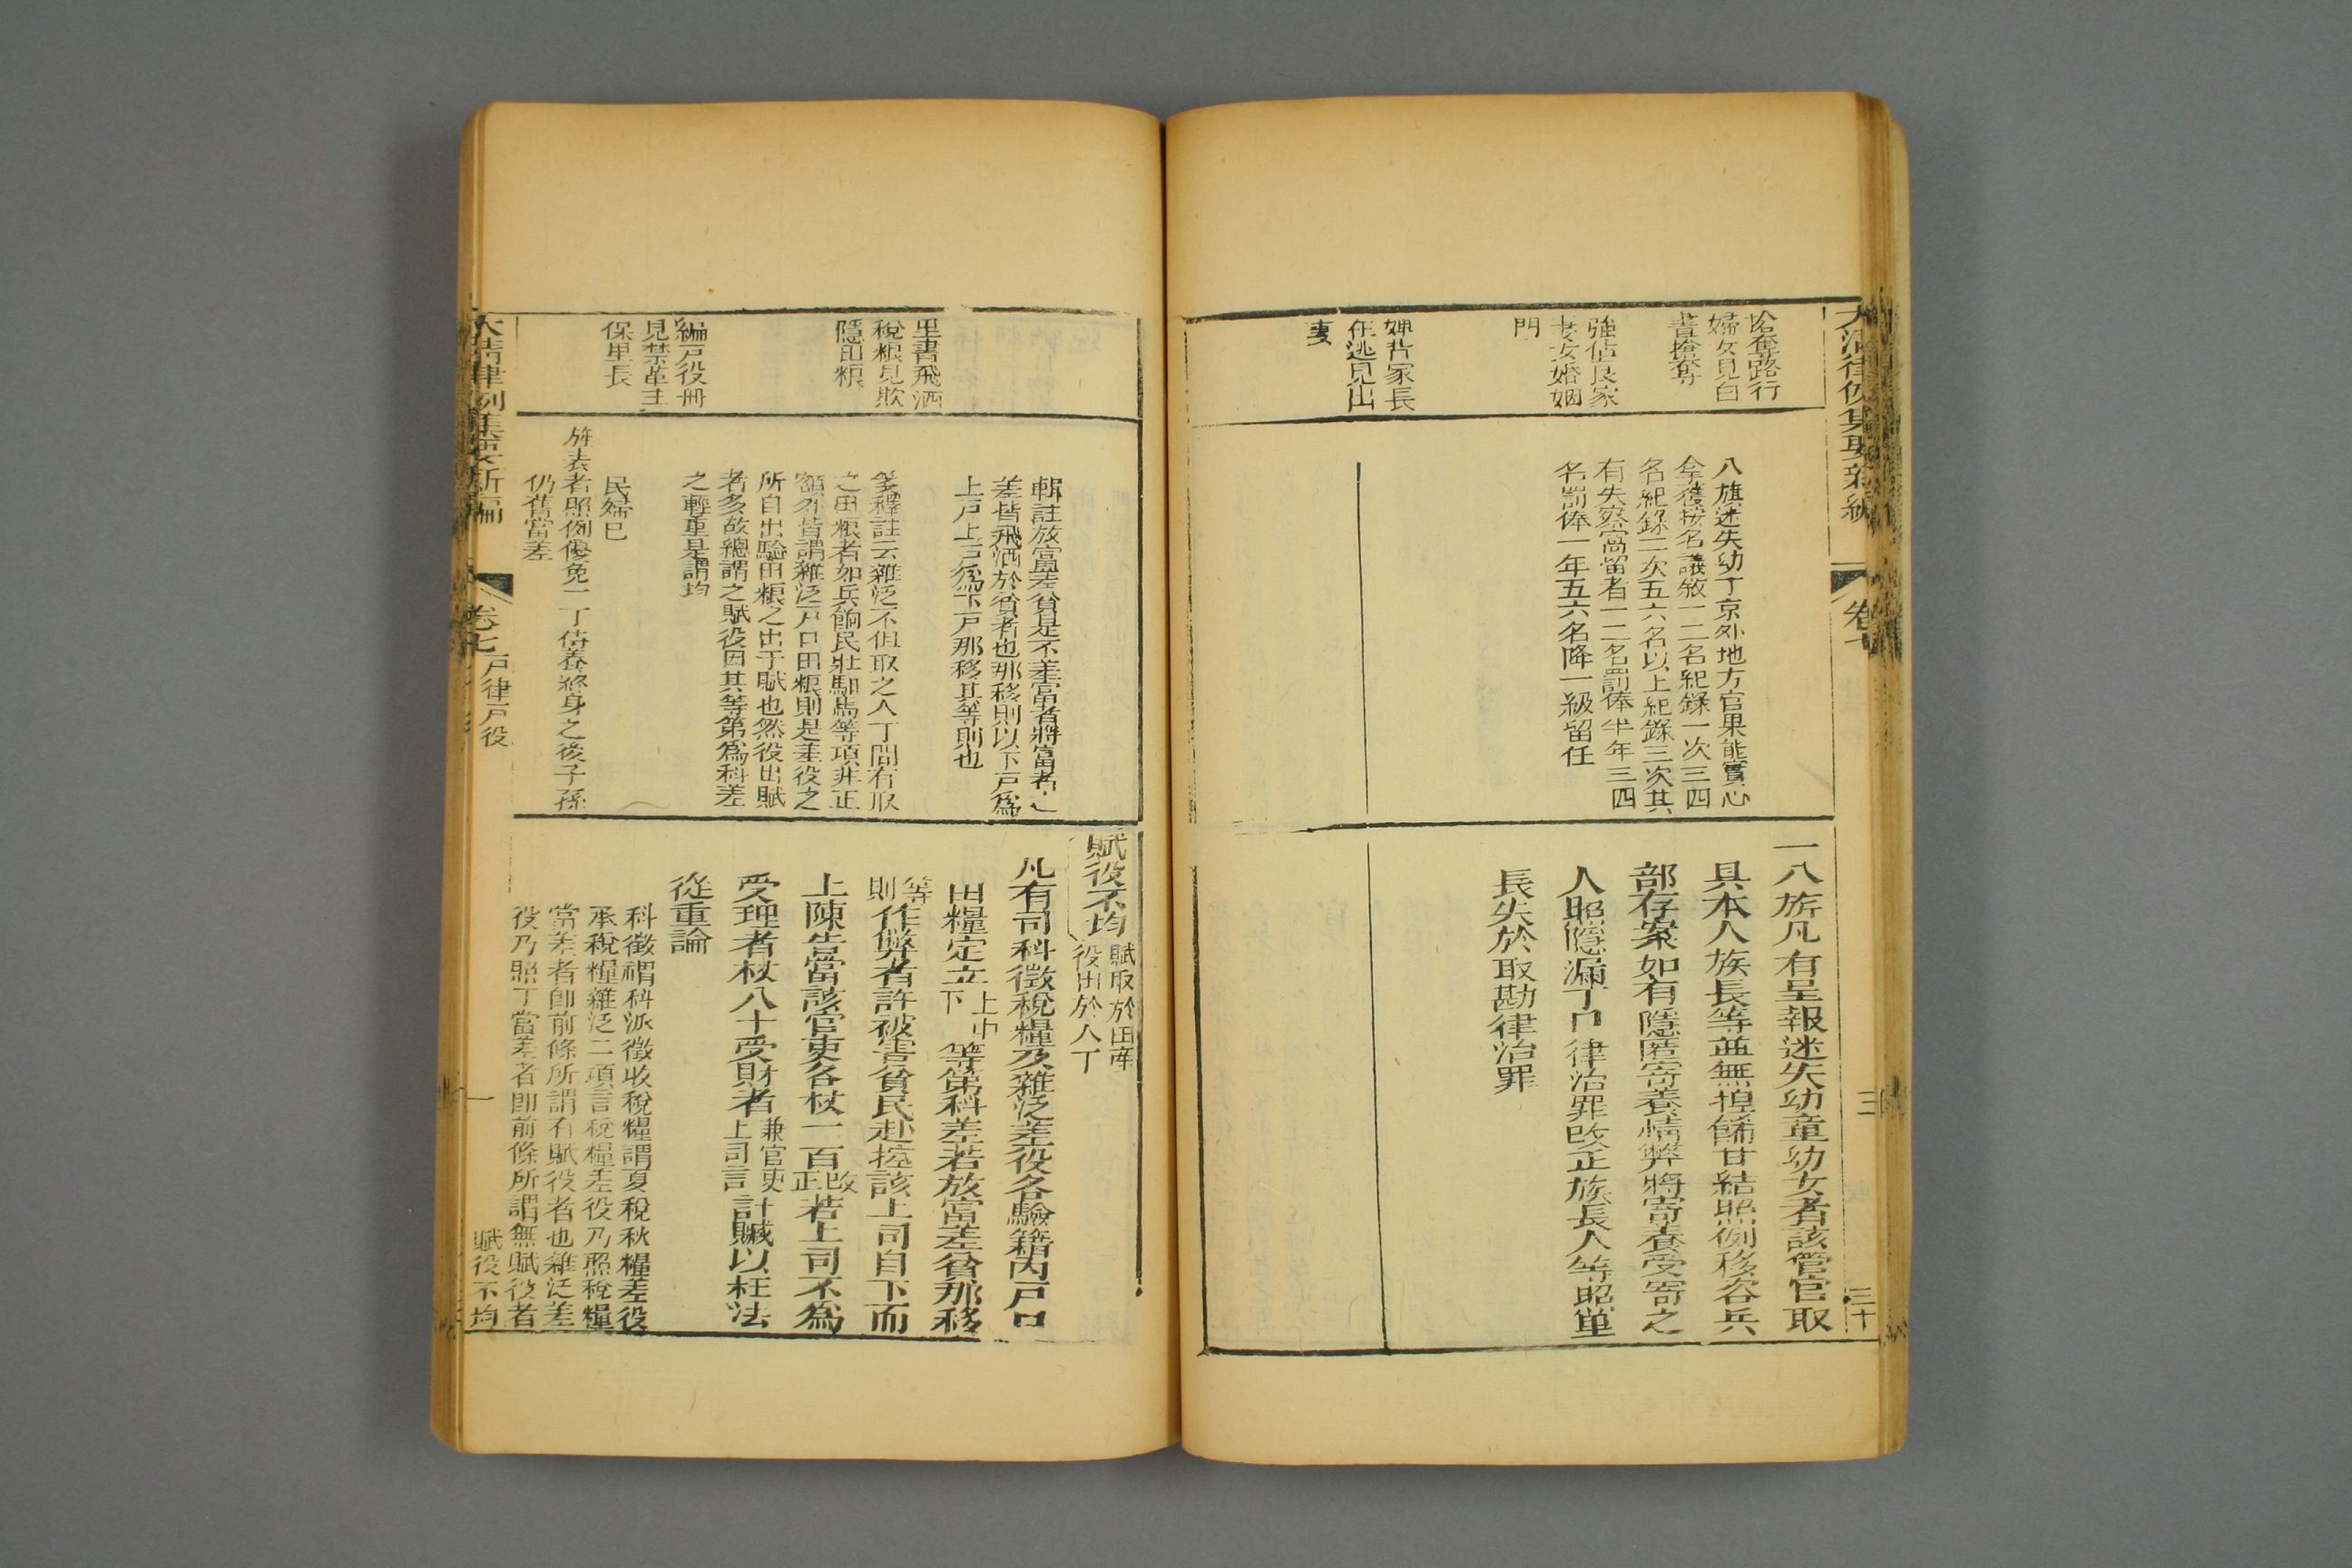 搶奪路行
婦女見白
晝搶奪
強佔良家
妻女婚姻
門
婢背家長
在逃見出
妻
八旗迷失幼丁京外地方官果能實心
拿獲按名議敘一二名紀錄一次三四
名紀錄二次五六名以上紀錄三次其
有失察窩留者一二名罰俸半年三四
名罰俸一年五六名降一級留任
一八旂凡有呈報迷失幼童幼女者該管官取
具本人族長等並無揑餙甘結照例移咨兵
部存案如有隱匿寄養情弊將寄養受寄之
人照隱漏丁口律治罪改正族長人等照單
長失於取勘律治罪
卷七
三十
里書飛洒
稅粮見欺
隱田粮
編戸役冊
見禁革主
保里長
輯註放富差貧是不差富者將富者之
差皆飛洒於貧者也那移則以下戸爲
上戸上戸爲下戸那移其等則也
箋釋註云雜泛不但取之人丁間有取
之田粮者如兵餉民壯馹馬等項非正
額外皆謂雜泛戸口田粮則是差役之
所自出驗田粮之出于賦也然役出賦
者多故總謂之賦役因其等第爲科差
之輕重是謂均
民婦已
旌表者照例優免一丁侍養終身之後子孫
仍舊當差
賦役不均 賦取於田産
役出於人丁
凡有司科徵稅糧及雜泛差役各驗籍內戸口
田糧定立上中下等第科差若放富差貧那移
等則作弊者許被害貧民赴控該上司自下而
上陳告當該官吏各杖一百改正若上司不爲
受理者杖八十受財者兼官吏上司言計贓以枉法
從重論
科徵謂科派徵收稅糧謂夏稅秋糧差役
承稅糧雜泛二項言稅糧差役乃照稅糧
當差者卽前條所謂有賦役者也雜泛差
役乃照丁當差者卽前條所謂無賦役者
大清律例集要新編
卷七 戸律戸役
賦役不均